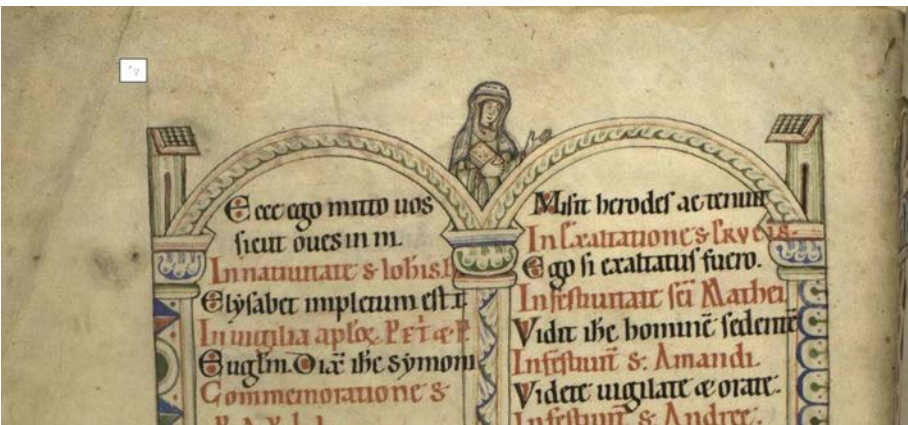 Ecce ego mitto uos
sicut oues in m.
In natiuitate s. Iohis b
Elysabet impletum est t
In uigilia aplox PET & P
Euglm. Dix ihc symoni
Commemoratione s.
Misit herodes ac tenuit
In Exaltatione s. CRVCIS.
Ego si exaltatus fuero.
In festiuitate sci Mathei
Vidit ihc hominē sedentē
In festiuit s. Amandi.
Videte uigilate & orate.
In festiuit s. Andree.